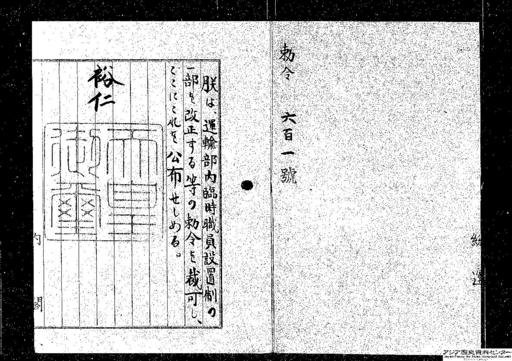 勅令 六百一號
朕は、運輸部内臨時職員設置制の
一部を改正する等の勅令を裁可し、
ここにこれを公布せしめる。
裕仁
天皇
御璽
内閣
アジア歴史資料センター